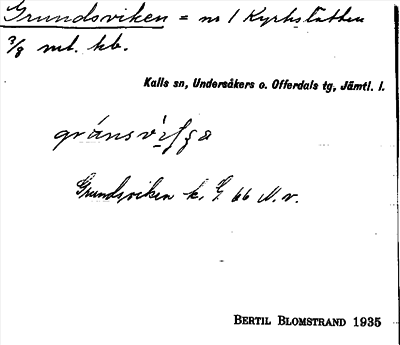 Grundsviken = nr 1 Kyrkslätten
3/8 mtl. kb.
Kalls sn, Undersåkers o. Offerdals tg, Jämtl. l.
Grundsviken k. G. 66 N. v.
BERTIL BLOMSTRAND 1935